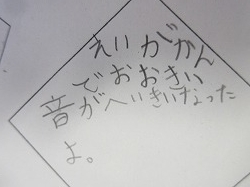 えいがかん
でおおきい
音がへいきになった
よ。